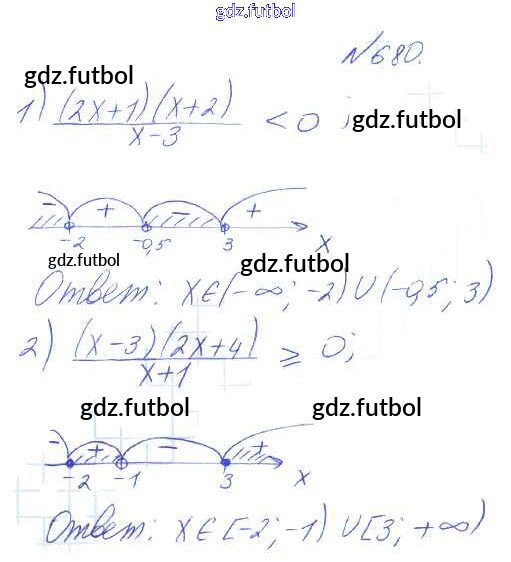 gdz.futbol
№680.
gdz.futbol
1) (2x+1)(x+2) / x-3 < 0 ;
gdz.futbol
- + - +
-2 -0,5 3 x
gdz.futbol gdz.futbol
Ответ: x∈(-∞; -2)∪(-0,5; 3)
2) (x-3)(2x+4) / x+1 ≥ 0;
gdz.futbol gdz.futbol
- + - +
-2 -1 3 x
Ответ: x∈[-2; -1)∪[3; +∞)